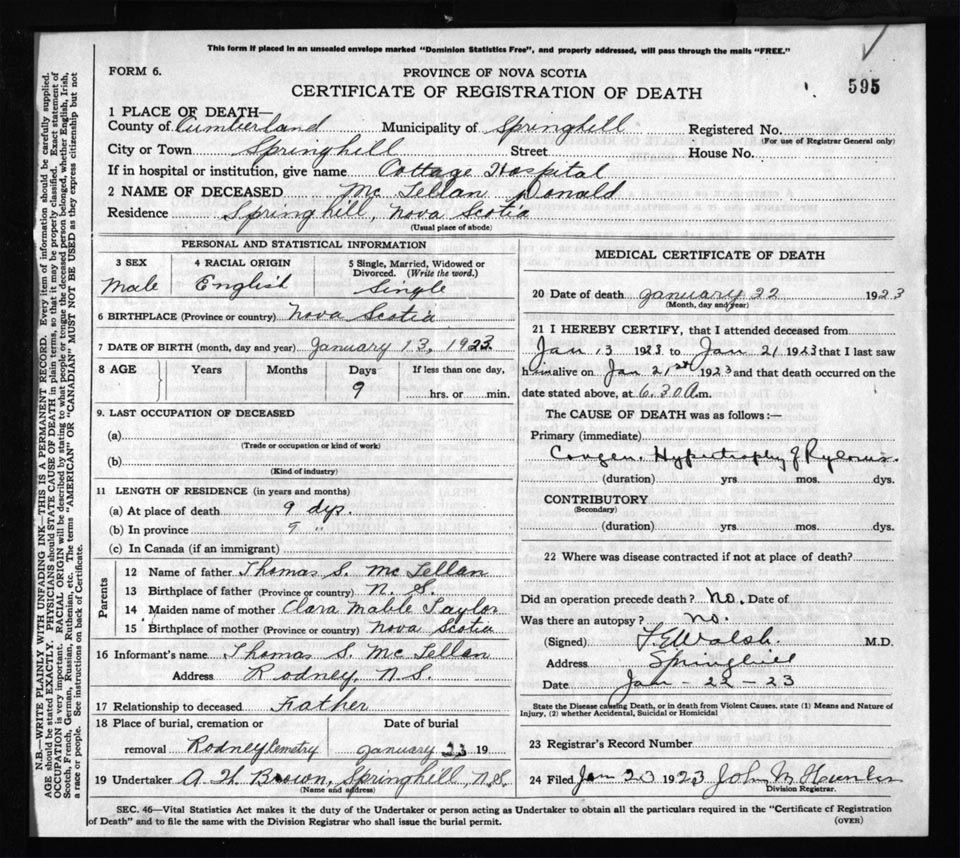 This form if placed in an unsealed envelope marked "Dominion Statistics Free", and properly addressed, will pass through the mails "FREE."
FORM 6.
PROVINCE OF NOVA SCOTIA
CERTIFICATE OF REGISTRATION OF DEATH
595
1 PLACE OF DEATH—
County of Cumberland Municipality of Springhill Registered No.
(For use of Registrar General only)
City or Town Springhill Street House No.
If in hospital or institution, give name Cottage Hospital
2 NAME OF DECEASED Mc Lellan Donald
Residence Springhill, Nova Scotia
(Usual place of abode)
PERSONAL AND STATISTICAL INFORMATION
3 SEX 4 RACIAL ORIGIN 5 Single, Married, Widowed or Divorced. (Write the word.)
Male English Single
6 BIRTHPLACE (Province or country) Nova Scotia
7 DATE OF BIRTH (month, day and year) January 13, 1923
8 AGE Years Months Days If less than one day,
9 hrs. or min.
9. LAST OCCUPATION OF DECEASED
(a)
(Trade or occupation or kind of work)
(b)
(Kind of industry)
11 LENGTH OF RESIDENCE (in years and months)
(a) At place of death 9 dys.
(b) In province 9 "
(c) In Canada (if an immigrant)
Parents
12 Name of father Thomas S. Mc Lellan
13 Birthplace of father (Province or country) N. S.
14 Maiden name of mother Clara Mable Taylor
15 Birthplace of mother (Province or country) Nova Scotia
16 Informant's name Thomas S. Mc Lellan
Address Rodney, N. S.
17 Relationship to deceased Father
18 Place of burial, cremation or Date of burial
removal Rodney Cemetry January 23 19
19 Undertaker A. H. Brown, Springhill, N.S.
(Name and address)
MEDICAL CERTIFICATE OF DEATH
20 Date of death January 22 1923
(Month, day and year)
21 I HEREBY CERTIFY, that I attended deceased from
Jan 13 1923 to Jan 21 1923 that I last saw
him alive on Jan 21st 1923 and that death occurred on the
date stated above, at 6.30 A.m.
The CAUSE OF DEATH was as follows:—
Primary (immediate)
Congen. Hypertrophy of Pylorus.
(duration) yrs. mos. dys.
CONTRIBUTORY
(Secondary)
(duration) yrs. mos. dys.
22 Where was disease contracted if not at place of death?
Did an operation precede death? No. Date of
Was there an autopsy? no.
(Signed) Walsh. M.D.
Address Springhill
Date Jan-22-23
State the Disease causing Death, or in death from Violent Causes, state (1) Means and Nature of
Injury, (2) whether Accidental, Suicidal or Homicidal
23 Registrar's Record Number
24 Filed Jan 23 1923 John M Hunter
Division Registrar.
SEC. 46—Vital Statistics Act makes it the duty of the Undertaker or person acting as Undertaker to obtain all the particulars required in the "Certificate of Registration
of Death" and to file the same with the Division Registrar who shall issue the burial permit.
(OVER)
N.B.—WRITE PLAINLY WITH UNFADING INK—THIS IS A PERMANENT RECORD. Every item of information should be carefully supplied.
AGE should be stated EXACTLY. PHYSICIANS should STATE CAUSE OF DEATH in plain terms, so that it may be properly classified. Exact statement of
OCCUPATION is very important. RACIAL ORIGIN will be described by stating to what people or tongue the deceased person belonged, whether English, Irish,
Scotch, French, German, Russian, Ruthenian, etc. The terms "AMERICAN" OR "CANADIAN" MUST NOT BE USED as they express citizenship but not
a race or people. See instructions on back of Certificate.